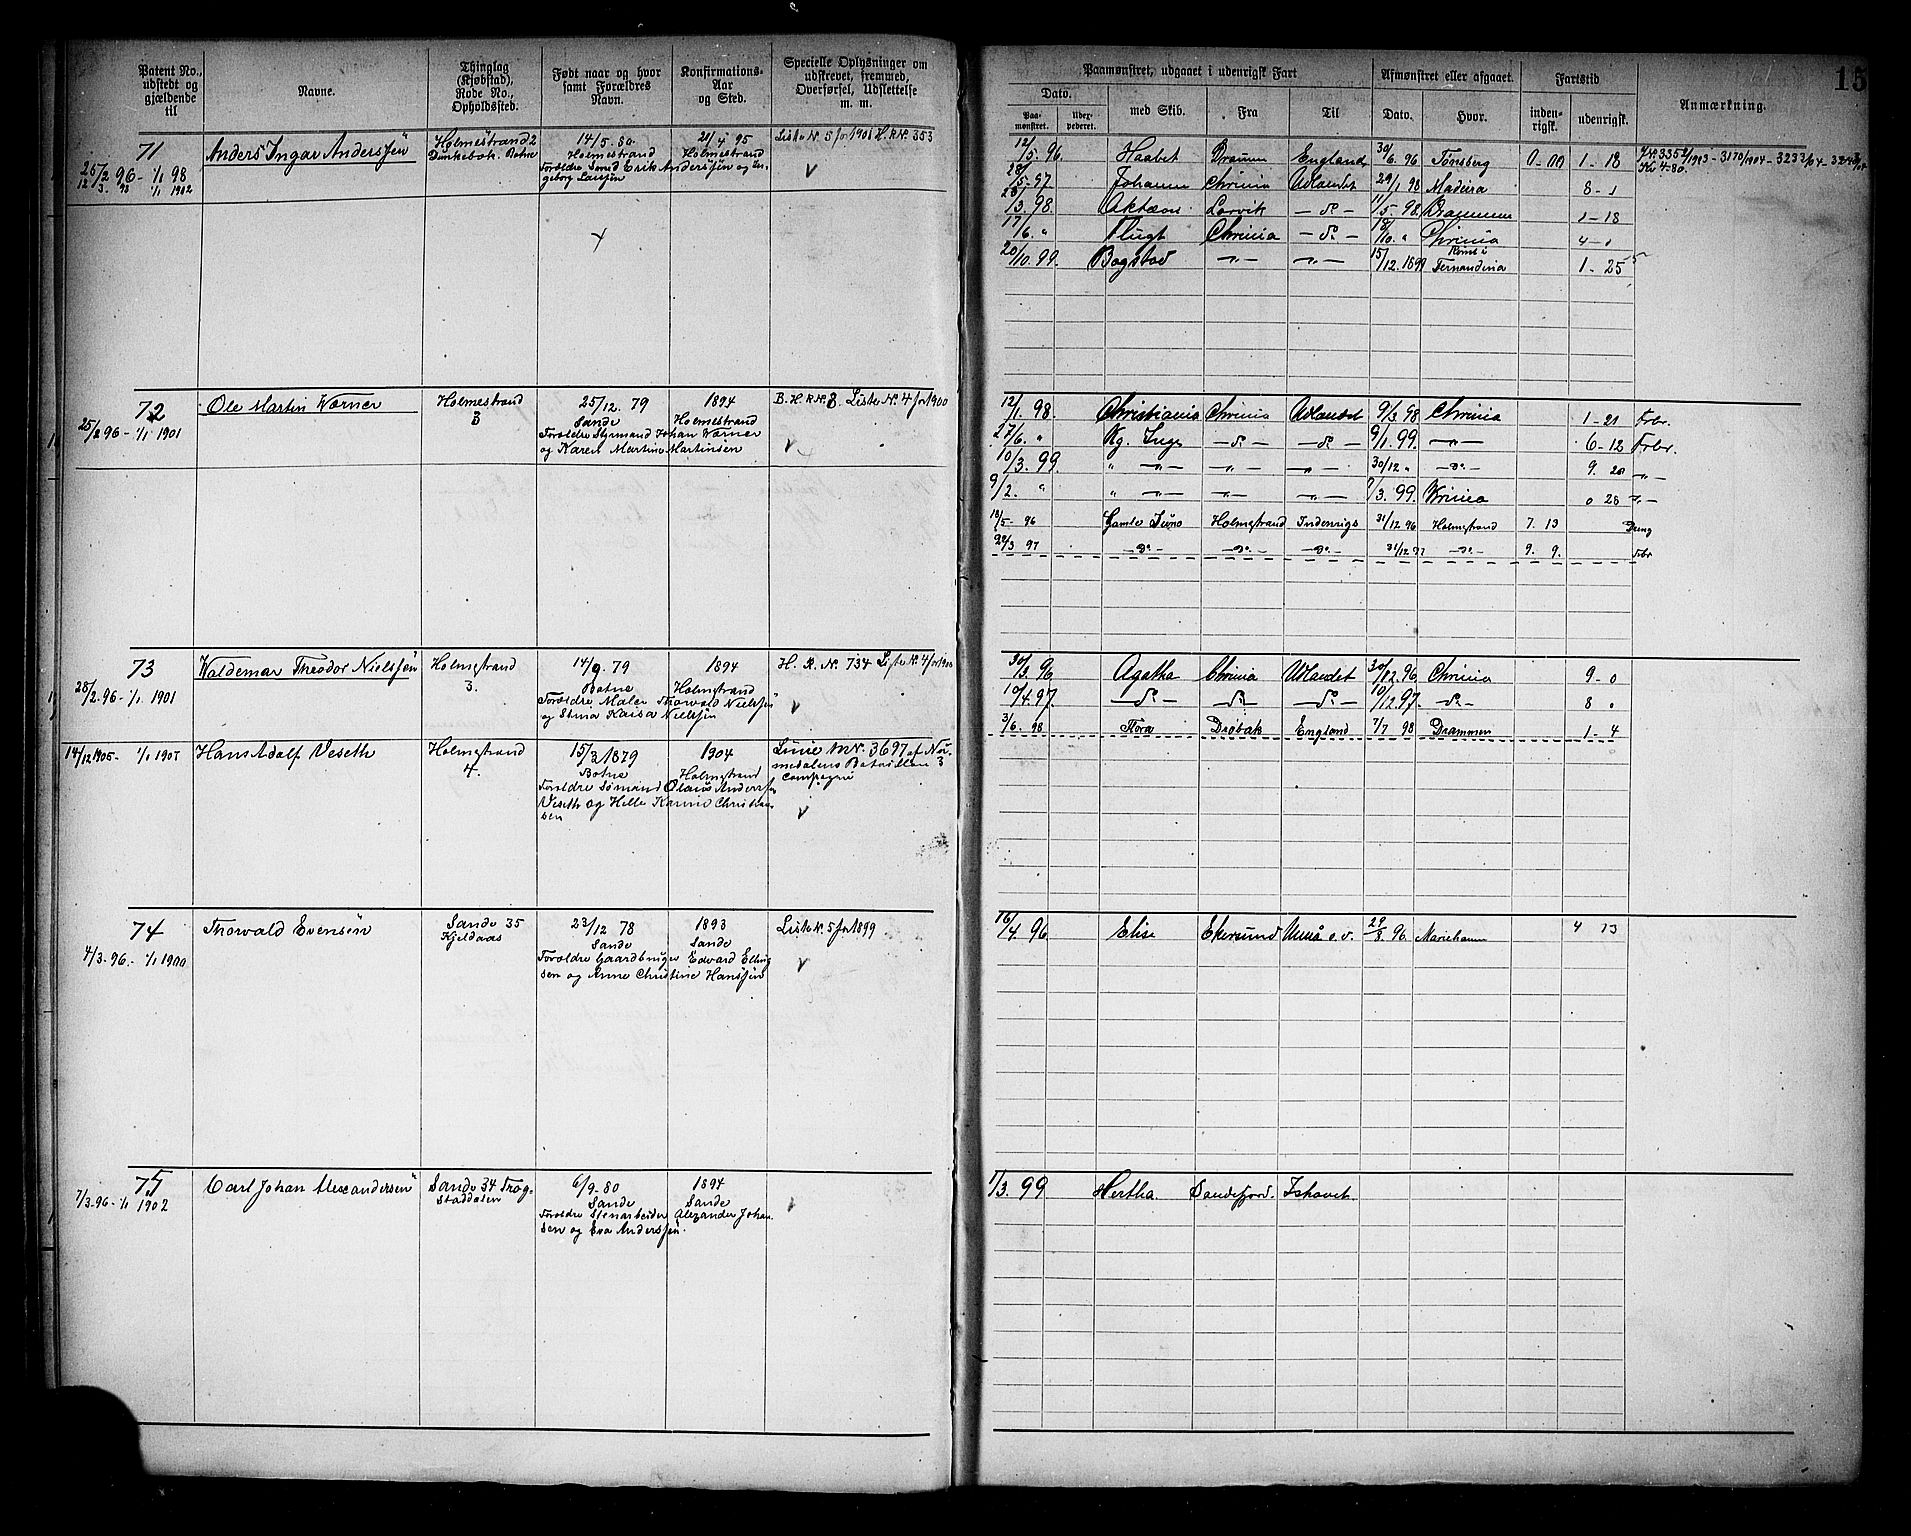 Patent No., udstedt og gjældende til
Navne.
Thinglag (Kjøbstad), Rode No., Opholdssted.
Født naar og hvor samt Forældres Navn.
Konfirmations-Aar og Sted.
Specielle Oplysninger om udskrevet, fremmed, Overførsel, Udslettelse m. m.
Paamønstret, udgaaet i udenrigsk Fart
Dato.
Paa-mønstret.
Uder-pederet.
med Skib.
Fra
Til
Afmønstret eller afgaaet.
Dato.
Hvor.
Fartstid
inden-rigsk.
udenrigsk.
Anmærkning.
15
71
Anders Ingar Anderssen
Holmestrand 2
Botne
14/5. 80.
Holmestrand
Forældre Smed Erik Anderssen og In-
geborg Larssen
21/4 95
Holmestrand
Liste N. 5 for 1901 H. R N. 353
1/1 98
1/1 1902
12/5. 96. Haabet England 30/6. 96 Tønsberg 0-00 1 - 18
/5-97 Johanna Chrinia Udlandet 29/1 98 Madeira 8 - 1
/3. 98. Larvik - do - 11/5. 98. 1 - 18
17/6. " Flugt Chrinia - do - /10. " Chrinia 4 - 0
20/10. 99. Bogstad - " - - " - 15/12. 1899 Fernandina 1 - 25
72
25/2 96 - 1/1 1901
Ole Martin Wærner
Holmestrand
3
25/12. 79
Sande
Forældre Styrmand Johan Wærner
og Karen Martine Martinsen
1894
Holmestrand
B. H. R N. 3. Liste N. 4 for 1900
12/1. 98. Christiania Chrinia Udlandet 9/3 98 Chrinia 1 - 21 Frbr.
27/6. " Kg. Inge - do. - - do - 9/1. 99. - " - 6 - 12 Frbr.
10/3. 99. " - " - - " - - " - 30/12 " - do - 9. 20 " -
9/2. " " - " - - " - - " - /3. 99. Krinia 0 28 " -
18/5 - 96 Gamle Juno Holmestrand Indenrigs 31/12 96 Holmestrand 7. 13 Dreng
/3 97 - do - - do - - do - 31/12 97 - do - 9. 9. Frbr
73
28/2. 96 - 1/1 1901
Waldemar Theodor Nielssen
Holmestrand
3.
14/9. 79
Botne
Forældre Maler Thorwald Nielssen
og Stina Kaisa Nielssen
1894
Holmestrand
H. R. N. 734 Liste N. 4 for 1900
30/3. 96 Agatha Chrinia Udlandet 30/12. 96 Chrinia 9 - 0
10/4. 97. - do - - do - - do - 10/12 97. - do - 8 0
3/6. 98 Flora Drøbak England 7/7 98 Drammen 1 - 4
14/12 1905 - 1/1 1907
Hans Adolf Veseth
Holmestrand
4.
15/3 1879
Botne
Forældre Sømand Olaus Anderssen
Veseth og Helle Karine Christian
sen
1904
Holmestrand
Linie MN. 3697 af Nu-
medalens Bataillon 3
Compagni
74
4/3. 96. - 1/1 1900
Thorvald Evensen
Sande 35
Kjeldaas
23/12 78
Sande
Forældre Gaardbruger Edvard Elling
sen og Anne Christine Hanssen
1893
Sande
Liste N. 5 for 1899
16/4 96. Elise Ekersund Umeå o. v. 29/8. 96. Mariehamn 4 13
75
7/3. 96 - 1/1 1902
Carl Johan Alexandersen
Sande 34
6/9. 80
Sande
Forældre Stenarbeider Alexander Johan
sen og Eva Anderssen.
1894
Sande
1/3. 99 Hertha. Sandefjord. Ishavet.